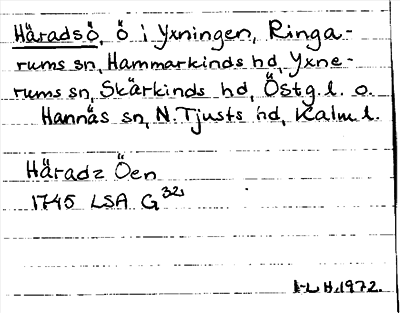 Häradsö, ö i Yxningen, Ringa-
rums sn, Hammarkinds hd, Yxne-
rums sn, Skärkinds hd, Östg.l. o.
Hannäs sn, N. Tjusts hd, Kalm l.
Häradz Öen
1745 LSA G 32
I-L H. 1972.